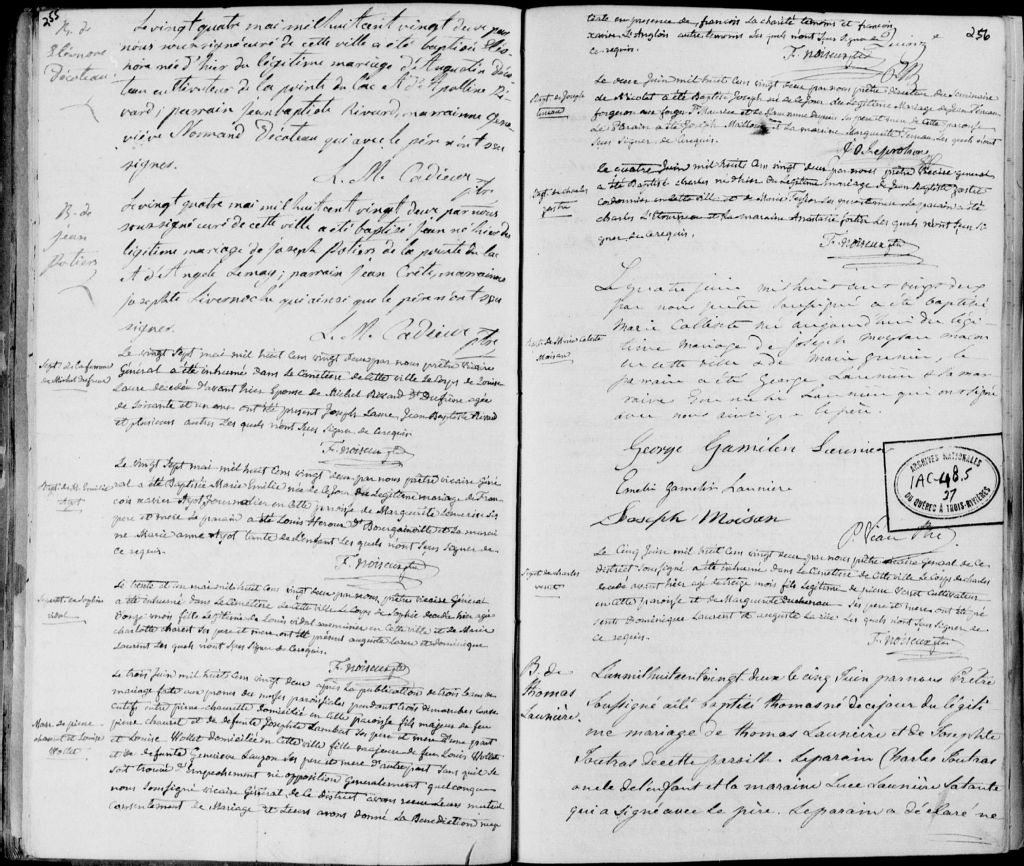 255
B. de
Eléonore
Décoteau.
Le vingt quatre mai mil huit cent vingt deux par
nous soussigné curé de cette ville a été baptisée Eléo
nore née d'hier du légitime mariage d'Augustin Déco
teau cultivateur de la pointe du lac & d'Apolline Ri
vard; parrain Jean baptiste Rivard, marrainne Gene
viève Normand Décoteau qui avec le père n'ont su
signer.
L. M. Cadieux ptre
B. de
Jean
Potiers
Le vingt quatre mai mil huit cent vingt deux par nous
soussigné curé de cette ville a été baptisé Jean né hier du
légitime mariage de Joseph Potiers de la pointe du lac
& d'Angele Lemay; parrain Jean Crête, marrainne
Josephte Livernoche qui ainsi que le père n'ont su
signer.
L. M. Cadieux ptre
Sept. de la femme
de Michel Dufresne
Le vingt Sept mai mil huit Cen vingt deux par nous prêtre vicaire
Général a été inhumé dans Le Cimetière de Cette ville Le Corps de Louise
Laure décédée d'avant hier Epouse de Michel Rivard Dt Dufresne agée
de Soixante et un ans ont été présent Joseph Laure, Jean Baptiste Rivard
et plusieurs autres Les quels n'ont Sçeu Signer de Ce requis
F. Noiseux ptre
Bapt. de M. Emilie
Ayot
Le vingt Sept mai mil huit Cen vingt deux par nous prêtre vicaire Géné
ral a été Baptisée Marie Emélie née de Ce Jour du Légitime mariage de Fran
çois xavier Ayot Journalier en Cette paroisse et de Marguerite Lemerise Ses
pere et mere Le parain a été Louis Heroux Dt Bourgainville et La marai
ne Marie anne Ayot tante de L'enfant Les quels n'ont Sçeu Signer de
ce requis.
F. Noiseux ptre
Sepult. de Sophie
vidal
Le trente et un mai mil huit Cen vingt deux par nous prêtre vicaire Général
a été inhumée dans Le Cimetière de Cette ville Le Corps de Sophie décédée hier agée
d'onze mois fille Légitime de Louis vidal menuisier en Cette ville et de Marie
charlotte charest Ses pere et mere, ont été présent auguste Larue et dominique
Laurent Les quels n'ont Sçeu Signer de Ce requis.
F. Noiseux ptre
Mar. de pierre
chauret et Louise
Wollet
Le trois Juin mil huit Cen vingt deux après La publications de trois bans de
mariage faite aux prones des messes paroissiales pendant trois dimanches Conse
cutifs entre pierre chaurette domicilié en Cette paroisse fils majeur de feu
pierre chauret et de defunte Josephte Lambert Ses pere et mere d'une part
et Louise Wollet domiciliée en Cette ville fille majeure de feu Louis Wollet
et de defunte Genevieve Lauzon Ses pere et mere d'autre part Sans qu'il Se
Soit trouvé d'Empechement ni opposition Generalement quelconque
nous Soussigné vicaire Général de Ce district avons reçu Leurs mutuel
Consentement de Mariage et Leurs avons donné La Benediction nup
256
tiale en presence de françois La charité temoins et francois
xavier L'Anglois autre temoins Les quels n'ont Sçeu Signer de
ce requis.
F. Noiseux ptre
Bapt. de Joseph
Terrian
Le deux Juin mil huit Cen vingt deux par nous prêtre Directeur du Séminaire
de Nicolet a été Baptisé Joseph né de Ce Jour du Légitime Mariage de Jean Terrian
forgeron aux forges St Maurice et de Ses pere et mere de Cette paroisse
Le Parain a été Joseph Mailloux et La maraine Marguerite Terrian Les quels n'ont
Sçeu Signer de Ce requis.
Bapt. de charles
Le quatre Juin mil huit Cen vingt deux par nous prêtre Vicaire general
a été Baptisé charles né d'hier du Légitime mariage de Jean Baptiste
Cordonnier en Cette ville et de Marie Ses pere et mere Le parain a été
charles et La maraine Anastasie Les quels n'ont Sçeu Si
gner de Ce requis.
F. Noiseux ptre
Bapt. de Marie Caliste
Moisan
Le quatre juin mil huit cent vingt deux
par nous prêtre soussigné a été baptisé
Marie Calliste né aujourd'hui du légi
time mariage de Joseph Moysan maçon
en cette ville & de Marie Grenier, le
parrain a été George Launière & la mar
raine Emélie Launière qui ont signé
avec nous ainsi que le père.
George Gamelin Launière
Emelie Gamelin Launiere
Joseph Moisan
ARCHIVES NATIONALES
IAC-48.5
37
DU QUÉBEC À TROIS-RIVIÈRES
Sept. de charles
Le Cinq Juin mil huit Cen vingt deux par nous prêtre vicaire General de Ce
district Soussigné a été inhumé dans Le Cimetière de Cette ville Le Corps de charles
decedé avant hier agé de treize mois fils Legitime de pierre Cultivateur
en Cette paroisse et de Marguerite Ses pere et mere ont été pré
sent Dominique Laurent et auguste Larue Les quels n'ont Sçeu Signer de
Ce requis.
F. Noiseux ptre
B. de
thomas
Launière.
L'an mil huit cent vingt deux le cinq Juin par nous Prêtre
soussigné a été baptisé thomas né de ce jour du légiti
me mariage de thomas Launière et de Josephte
Joutras de cette paroisse. Le parain Charles Joutras
oncle de l'enfant et la maraine Luce Launière sa tante
qui a signé avec le père. Le parain a déclaré ne